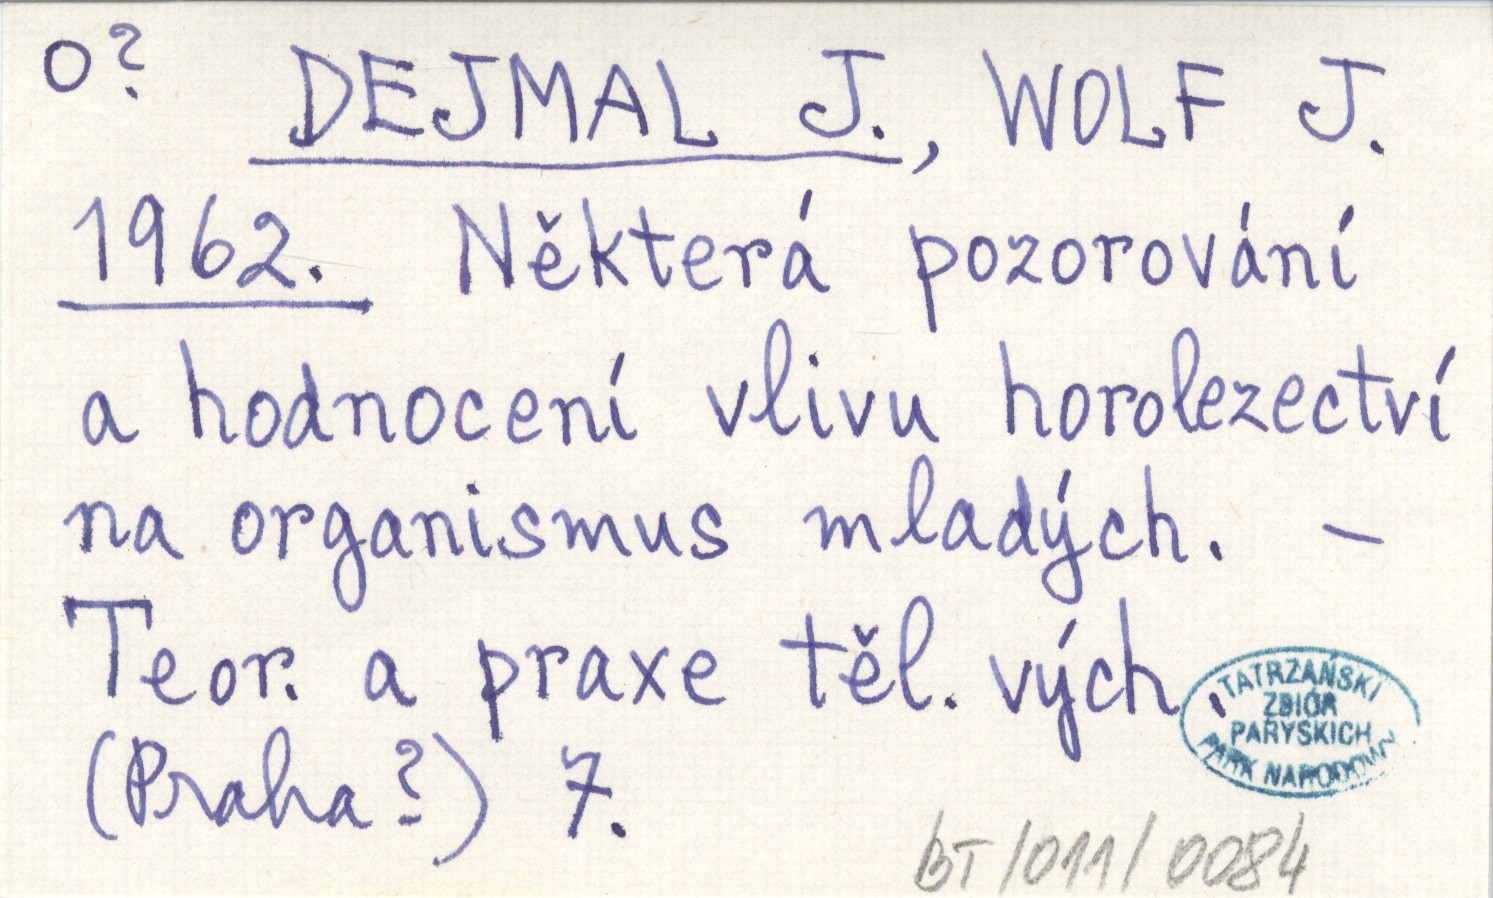 o? DEJMAL J., WOLF J.
1962. Některá pozorování
a hodnocení vlivu horolezectví
na organismus mladých. —
Teor. a praxe těl. vých.
(Praha?) 7.
TATRZAŃSKI
ZBIÓR
PARYSKICH
PARK NARODOWY
BT/011/0084